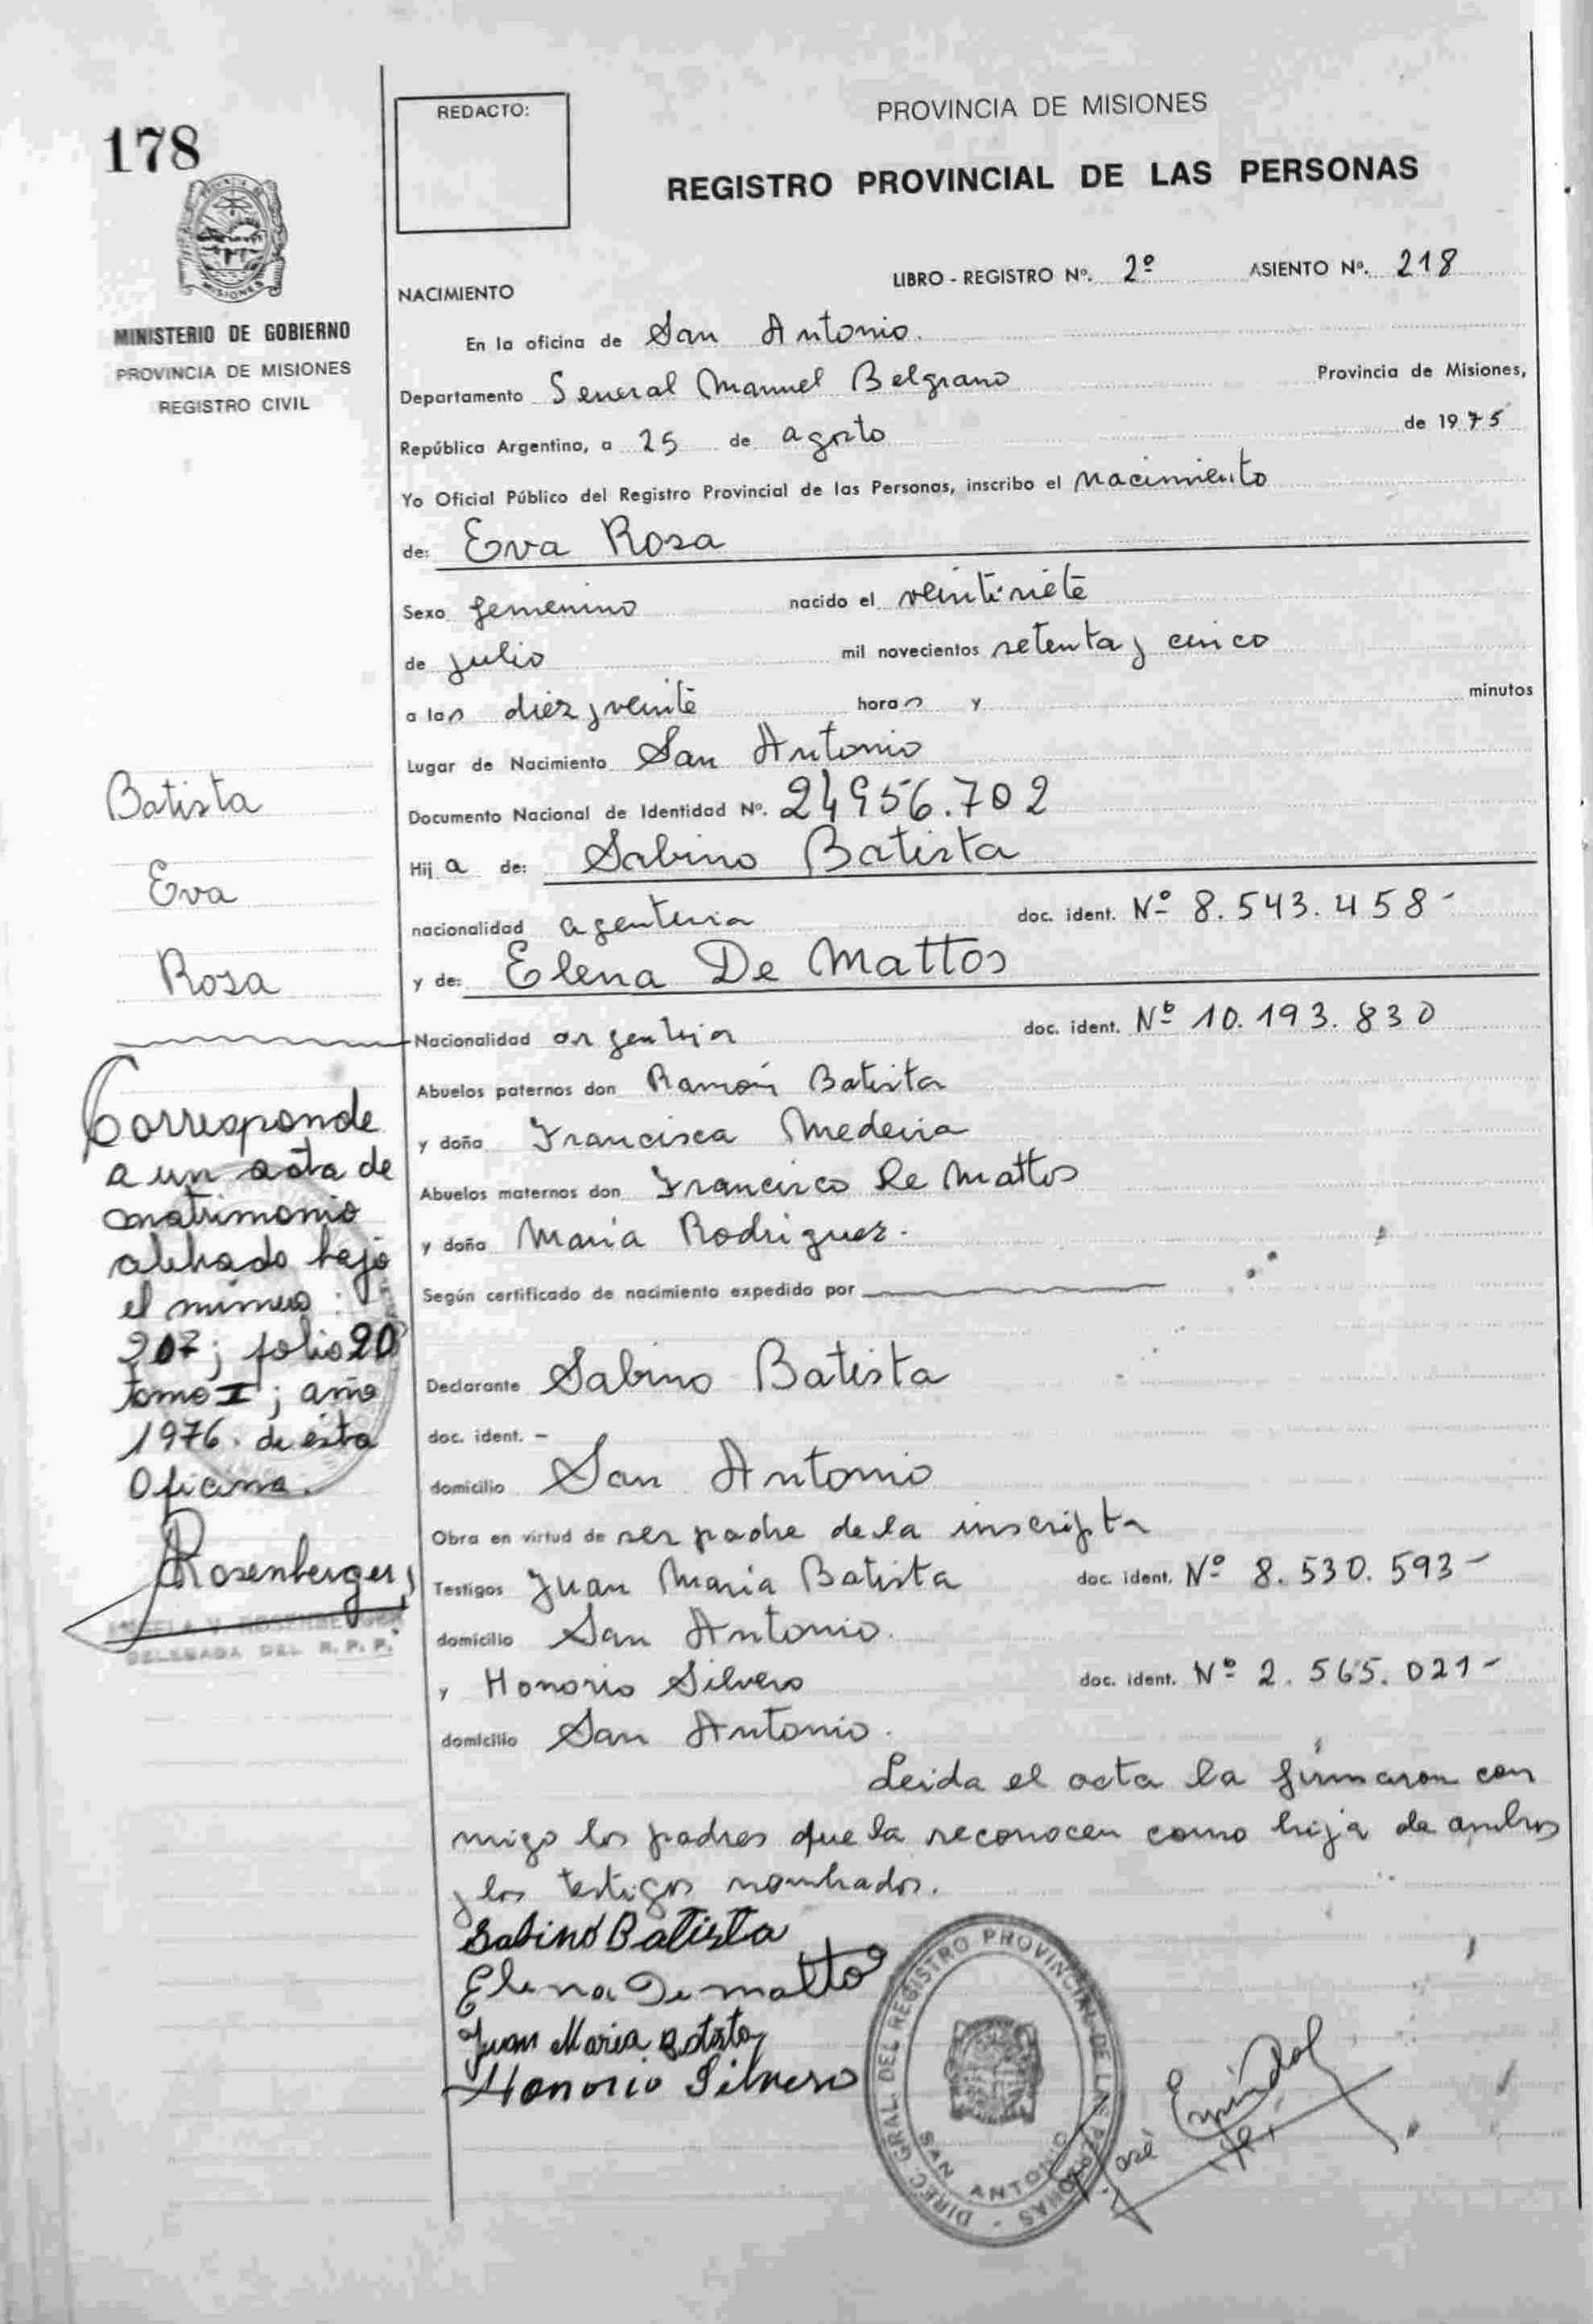 178
MISIONES
MINISTERIO DE GOBIERNO
PROVINCIA DE MISIONES
REGISTRO CIVIL
REDACTO:
PROVINCIA DE MISIONES
REGISTRO PROVINCIAL DE LAS PERSONAS
LIBRO - REGISTRO Nº. 2º ASIENTO Nº. 218
NACIMIENTO
En la oficina de San Antonio.
Departamento General Manuel Belgrano Provincia de Misiones,
República Argentina, a 25 de agosto de 1975
Yo Oficial Público del Registro Provincial de las Personas, inscribo el nacimiento
de: Eva Rosa
Sexo femenino nacido el veintisiete
de julio mil novecientos setenta y cinco
a las diez y veinte horas y minutos
Lugar de Nacimiento San Antonio
Documento Nacional de Identidad Nº. 24956.702
Hija de: Sabino Batista
nacionalidad agentina doc. ident. Nº 8.543.458-
y de: Elena De Mattos
Nacionalidad argentina doc. ident. Nº 10.193.830
Abuelos paternos don Ramón Batista
y doña Francisca Medeira
Abuelos maternos don Francisco De Mattos
y doña Maria Rodriguez.
Según certificado de nacimiento expedido por
Declarante Sabino Batista
doc. ident. -
domicilio San Antonio
Obra en virtud de ser padre de la inscripta
Testigos Juan Maria Batista doc. ident. Nº 8.530.593-
domicilio San Antonio.
y Honorio Silvero doc. ident. Nº 2.565.021-
domicilio San Antonio.
Leida el acta la firmaron con
migo los padres que la reconocen como hija de ambos
y los testigos nombrados.
Sabino Batista
Elena De matto
Juan Maria Batista
Honorio Silvero
DIREC. GRAL. DEL REGISTRO PROVINCIAL DE LAS PERSONAS -
SAN ANTONIO
José
Batista
Eva
Rosa
Corresponde
a un acta de
matrimonio
labrado bajo
el número:
207; folio 20
tomo I; año
1976. de esta
Oficina.
Rosenberger
DELEGADA DEL R.P.P.